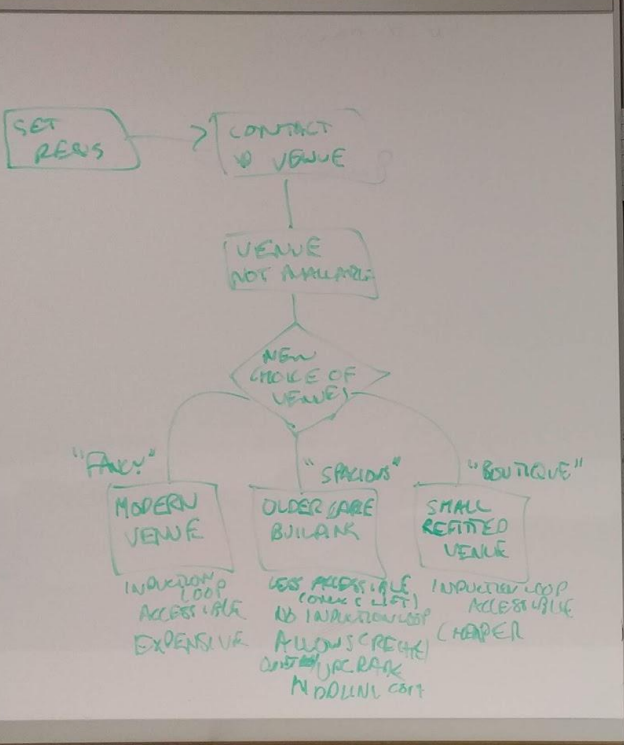 SET
REQS
CONTACT
VENUE
VENUE
NOT AVAILABLE
NEW
CHOICE OF
VENUES
"FANCY"
MODERN
VENUE
INDUCTION
LOOP
ACCESSIBLE
EXPENSIVE
"SPACIOUS"
OLDER LARGE
BUILDING
LESS ACCESSIBLE
LIFT)
NO INDUCTION LOOP
ALLOWS CRECHE
UPGRADE
COST
"BOUTIQUE"
SMALL
REFITTED
VENUE
INDUCTION LOOP
ACCESSIBLE
CHEAPER